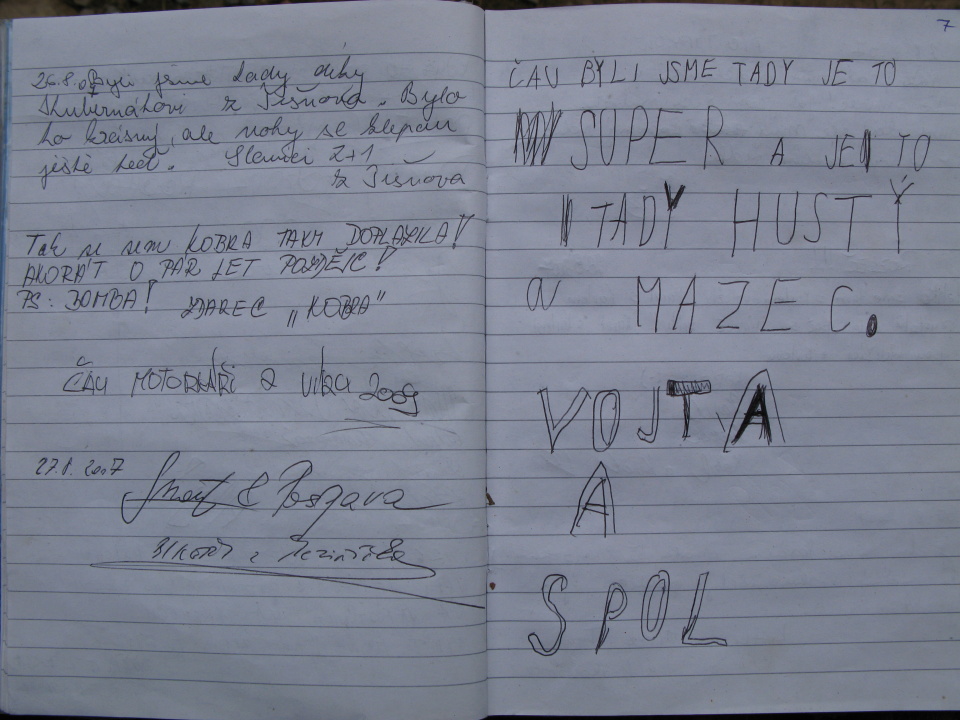 26.8. Byli jsme tady díky
z Tišnova. Bylo
to krásný, ale nohy se klepou
ještě teď. 2+1
z Tišnova
TAK SE SEM KOBRA TAKY DOPLAZILA!
AKORÁT O PÁR LET POZDĚJC!
PS: BOMBA! ZDAREC „KOBRA"
ČAU MOTORKÁŘI Z VLKU 2009
27.8. 2007
7
ČAU BYLI JSME TADY JE TO
SUPER A JE TO
TADY HUSTÝ
a MAZEC.
VOJTA
A
SPOL